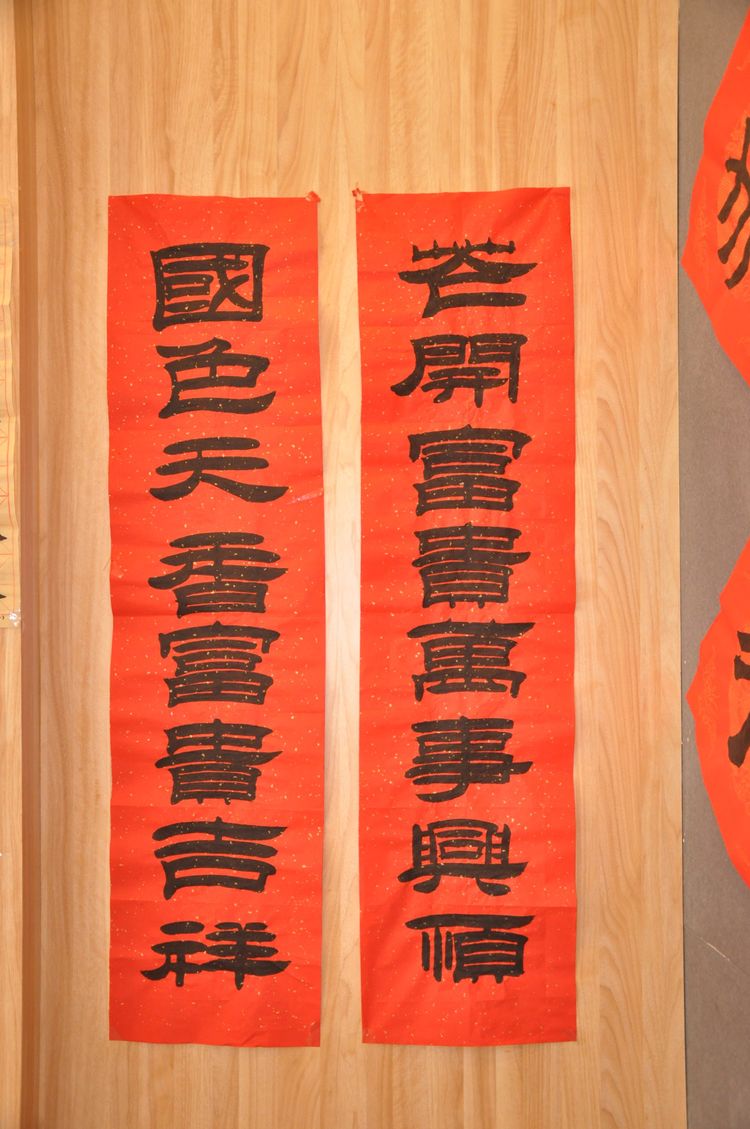 花開富貴萬事興順
國色天香富貴吉祥